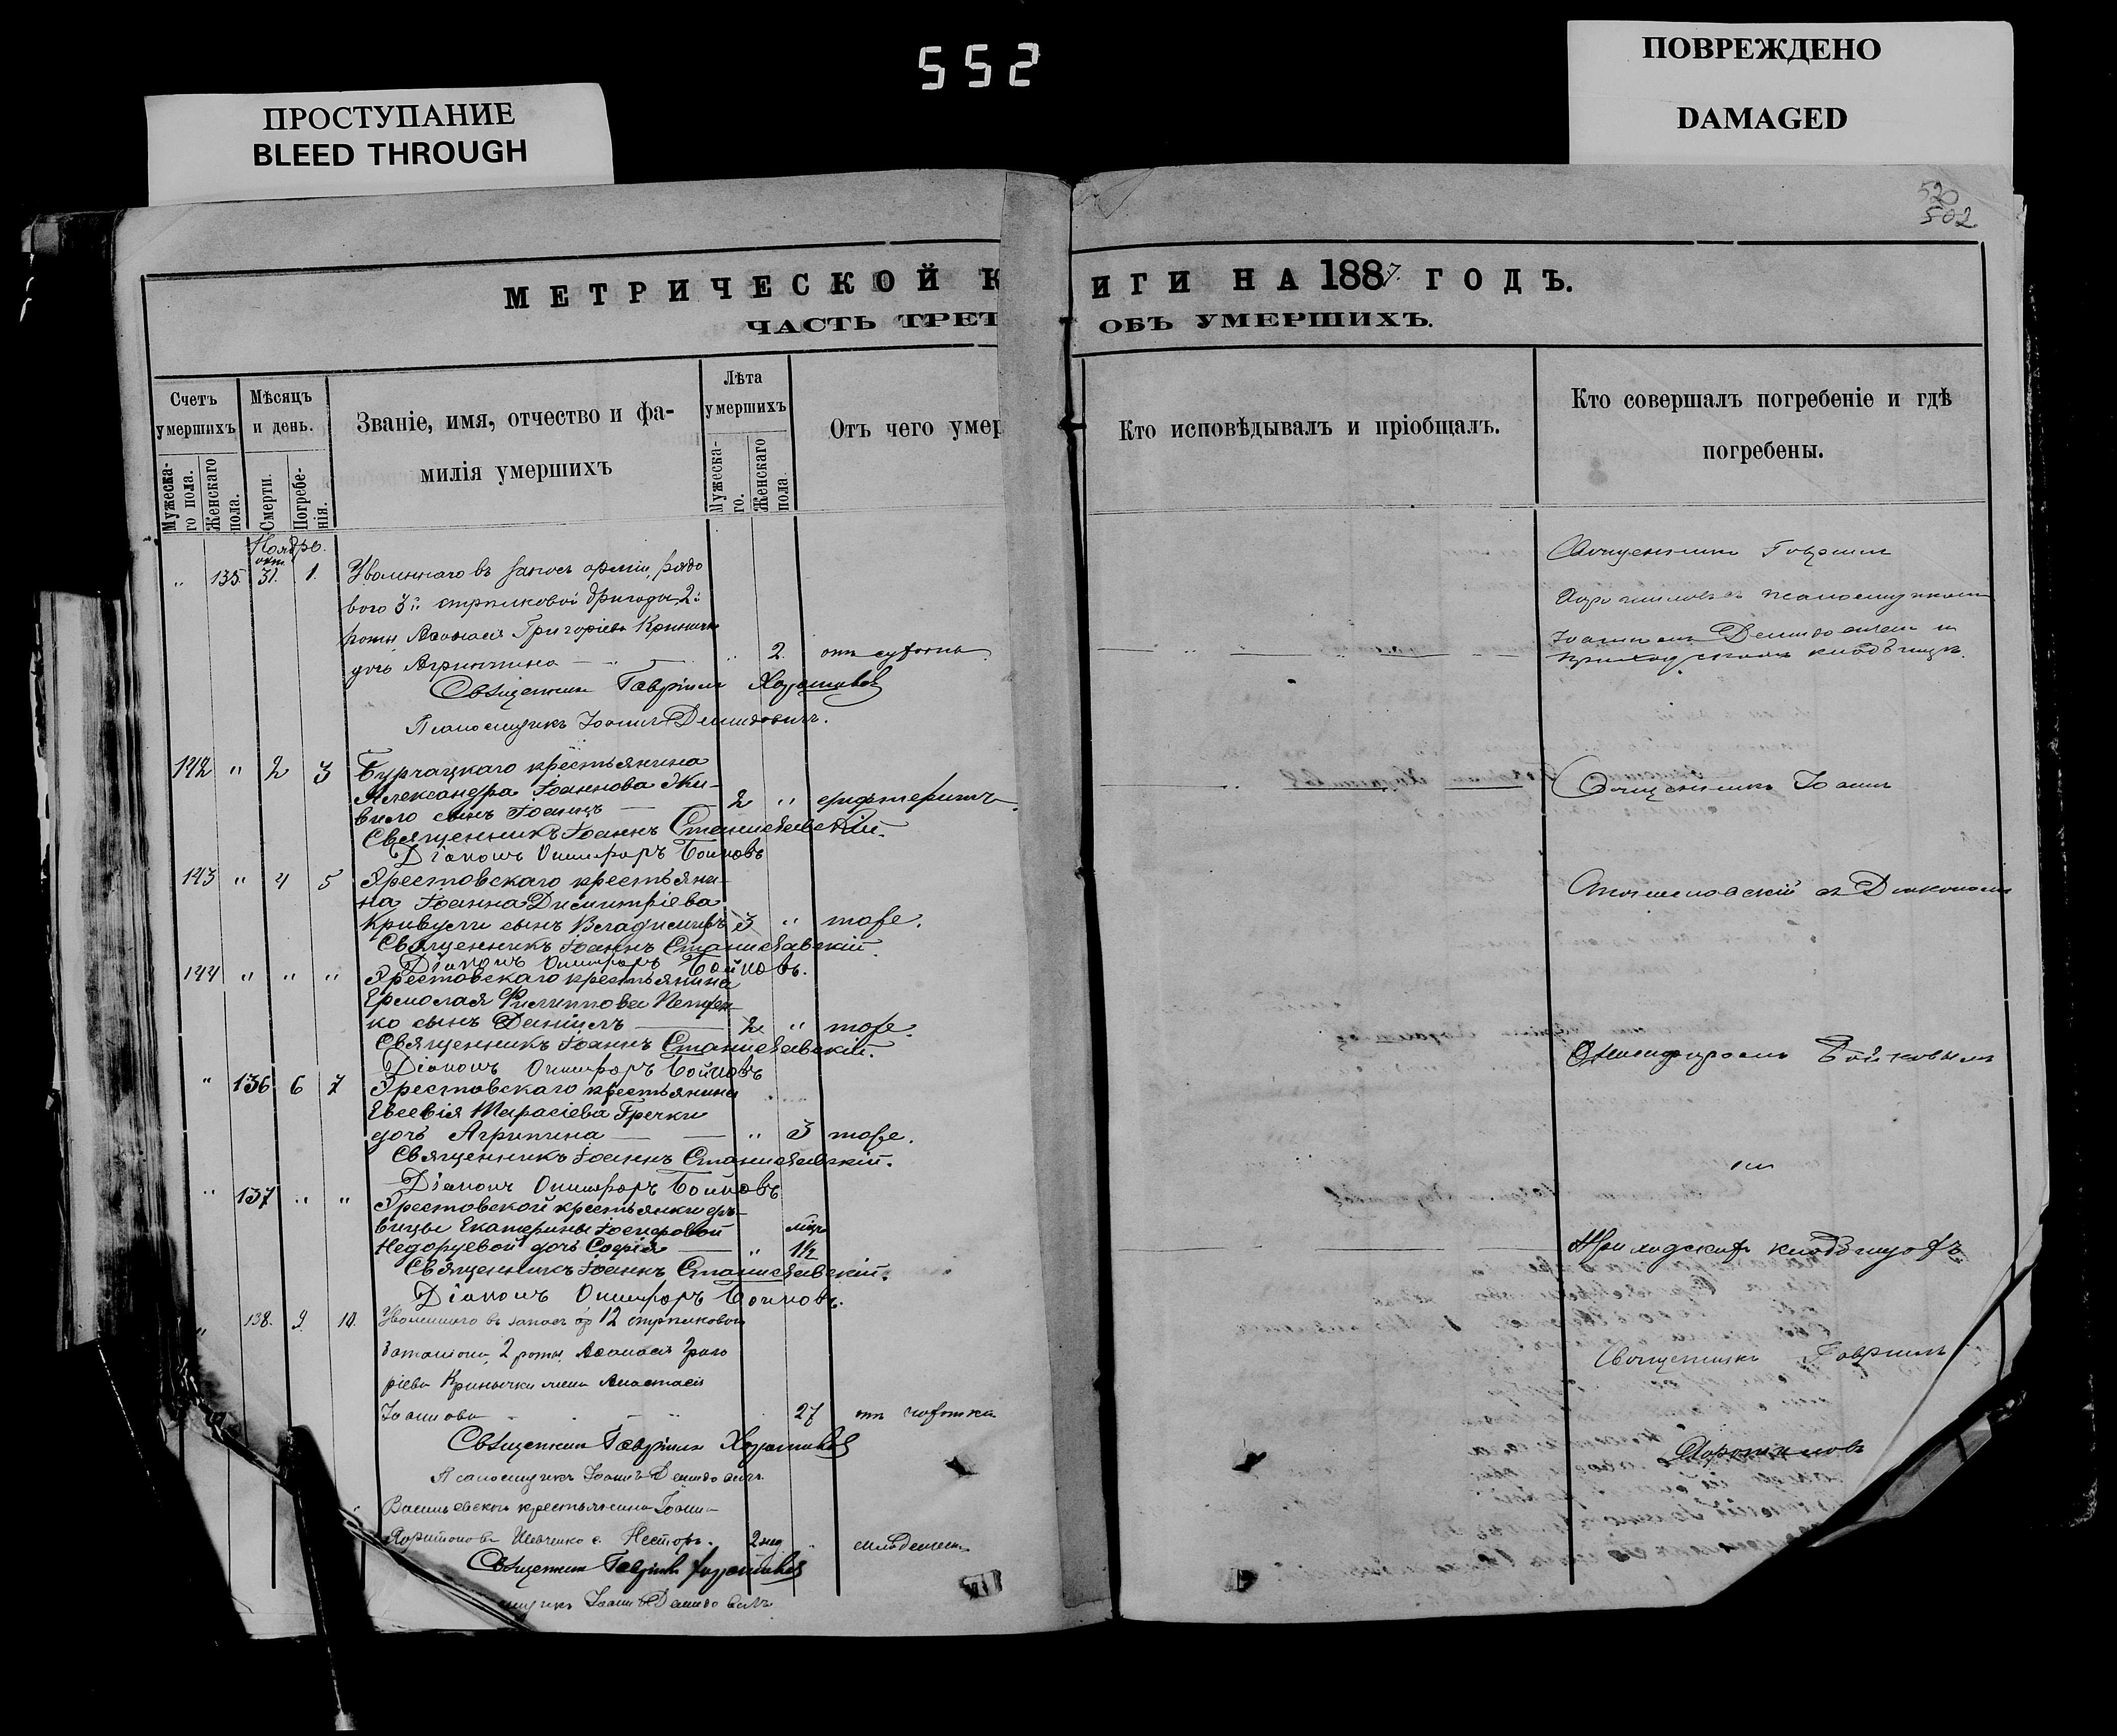 552
ПРОСТУПАНИЕ
BLEED THROUGH
ПОВРЕЖДЕНО
DAMAGED
520
502
МЕТРИЧЕСКОЙ К
ИГИ НА 1887. ГОДЪ.
ЧАСТЬ ТРЕТ
ОБЪ УМЕРШИХЪ.
Счетъ умершихъ
Мужеска-го пола.
Женскаго пола.
Мѣсяцъ и день.
Смерти.
Погребе-нія.
Званіе, имя, отчество и фа-
милія умершихъ
Лѣта умершихъ
Мужеска-го.
Женскаго пола.
Отъ чего умер
Кто исповѣдывалъ и пріобщалъ.
Кто совершалъ погребеніе и гдѣ
погребены.
Ноябрь.
окт.
" 135. 31. 1. Уволеннаго въ запасъ арміи, рядо
вого 3й стрѣлковой бригады, 2й
роты Аѳанасія Григоріева Кринички
дочь Агрипина " 2. отъ сухоты
Священникъ Гавріилъ
Псаломщикъ Іоаннъ Демидовичъ.
Священникъ Гавріилъ
псаломщикомъ
Іоанномъ Демидовичемъ на
приходскомъ кладбищѣ.
142 " 2 3 Бурчацкаго крестьянина
Александра Іоаннова Жи-
вило сынъ Іоаннъ 2 " дифтеритъ
Священникъ Іоаннъ Станиславскій.
Діаконъ Онисифоръ Бойковъ
Священникъ Іоаннъ
143 " 4 5 Хрестовскаго крестьяни-
на Іоанна Димитріева
Кривули сынъ Владимиръ 3 " тоже.
Священникъ Іоаннъ Станиславскій.
Діаконъ Онисифоръ Бойковъ.
Станиславскій съ Діакономъ
144 " " " Хрестовскаго крестьянина
Ермолая Филиппова Петрен-
ко сынъ Даніилъ 2 " тоже.
Священникъ Іоаннъ Станиславскій.
Діаконъ Онисифоръ Бойковъ
Онисифоромъ Бойковымъ
" 136 6 7 Хрестовскаго крестьянина
Евсевія Тарасіева Гречки
дочь Агрипина " 3 тоже.
Священникъ Іоаннъ Станиславскій.
Діаконъ Онисифоръ Бойковъ
на
" 137 " " Хрестовской крестьянки дѣ-
вицы Екатерины Іосифовой
мѣс
дочь Софія " 1½
Священникъ Іоаннъ Станиславскій.
Діаконъ Онисифоръ Бойковъ.
Приходскихъ кладбищахъ
" 138. 9. 10. Уволеннаго въ запасъ ар 12 стрѣлковой
баталіона, 2 роты Аѳанасія Григо
ріева Кринички жена Анастасія
Іоаннова 27 отъ чахотки
Священникъ Гавріилъ
Псаломщикъ Іоаннъ Демидовичъ.
Священникъ Гавріилъ
Васильевскаго крестьянина Іоанна
Харитонова Шевченко с. Несторъ. 2 нед. "
Священникъ Гавріилъ
щикъ Іоаннъ Демидовичъ